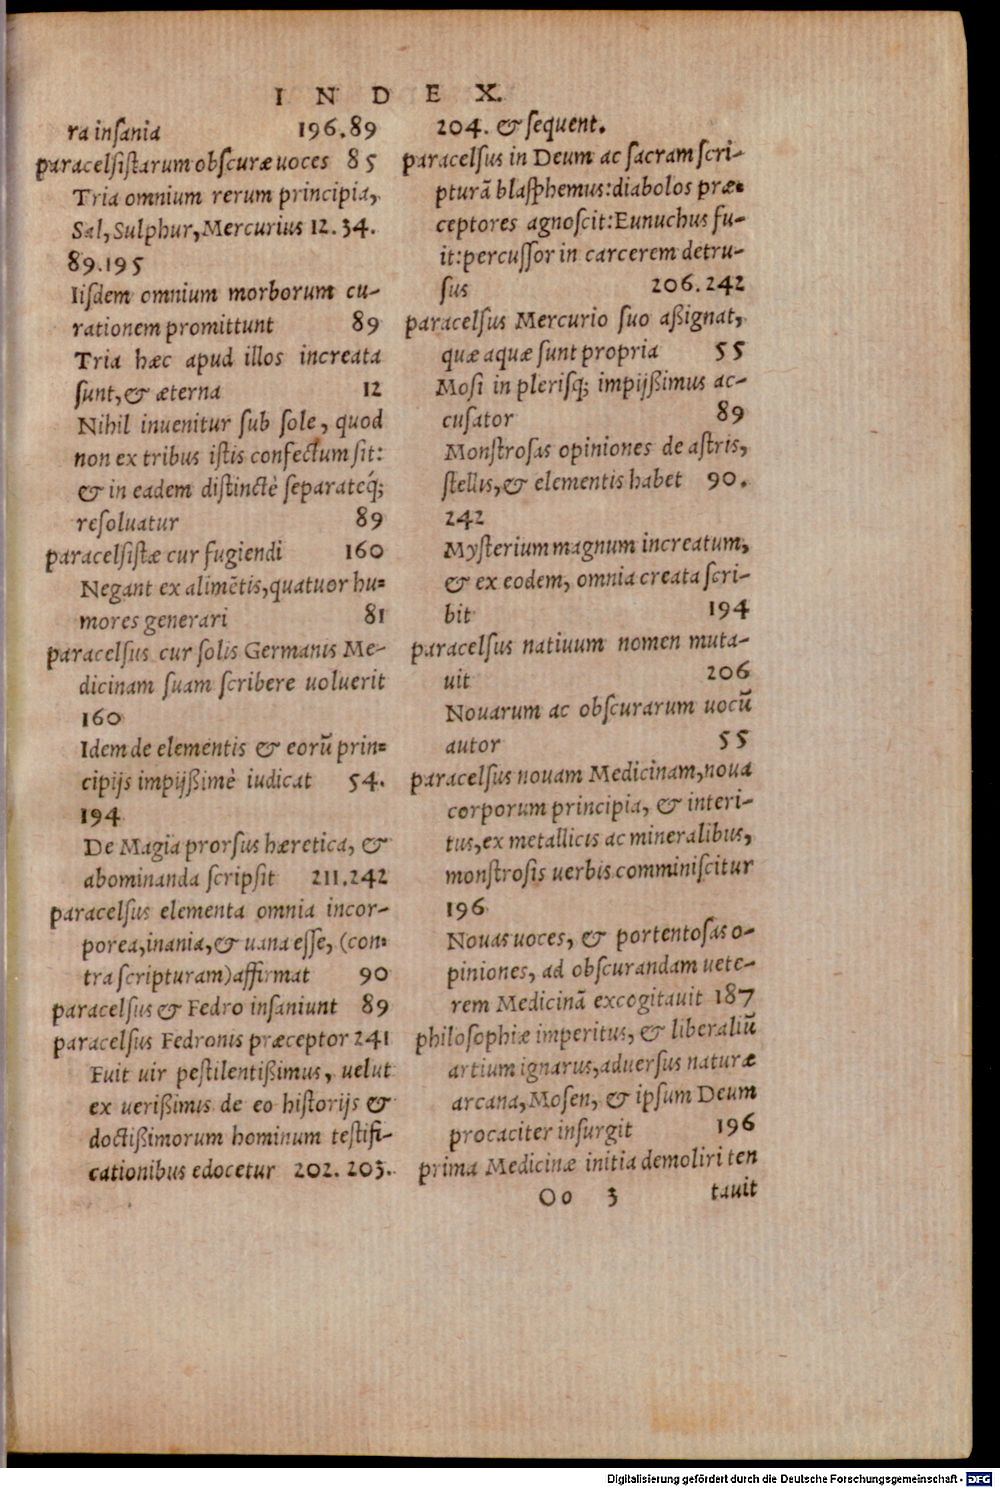 INDEX.
ra insania 196.89
paracelsistarum obscuræ uoces 85
Tria omnium rerum principia,
Sal, Sulphur, Mercurius 12.34.
89.195
Iisdem omnium morborum cu-
rationem promittunt 89
Tria hæc apud illos increata
sunt, & æterna 12
Nihil inuenitur sub sole, quod
non ex tribus istis confectum sit:
& in eadem distinctè separateq́;
resoluatur 89
paracelsistæ cur fugiendi 160
Negant ex alimētis, quatuor hu=
mores generari 81
paracelsus cur solis Germanis Me-
dicinam suam scribere uoluerit
160
Idem de elementis & eorū prin=
cipijs impijßimè iudicat 54.
194
De Magia prorsus hæretica, &
abominanda scripsit 211.242
paracelsus elementa omnia incor-
porea, inania, & uana esse, (con=
tra scripturam) affirmat 90
paracelsus & Fedro insaniunt 89
paracelsus Fedronis præceptor 241
Fuit uir pestilentißimus, uelut
ex uerißimis de eo historijs &
doctißimorum hominum testifi-
cationibus edocetur 202. 203.
204. & sequent.
paracelsus in Deum ac sacram scri-
pturā blasphemus: diabolos præ=
ceptores agnoscit: Eunuchus fu-
it: percussor in carcerem detru-
sus 206.242
paracelsus Mercurio suo aßignat,
quæ aquæ sunt propria 55
Mosi in plerisq; impijßimus ac-
cusator 89
Monstrosas opiniones de astris,
stellis, & elementis habet 90.
242
Mysterium magnum increatum,
& ex eodem, omnia creata scri-
bit 194
paracelsus natiuum nomen muta-
uit 206
Nouarum ac obscurarum uocū
autor 55
paracelsus nouam Medicinam, noua
corporum principia, & interi-
tus, ex metallicis ac mineralibus,
monstrosis uerbis comminiscitur
196
Nouas uoces, & portentosas o-
piniones, ad obscurandam uete-
rem Medicinā excogitauit 187
philosophiæ imperitus, & liberaliū
artium ignarus, aduersus naturæ
arcana, Mosen, & ipsum Deum
procaciter insurgit 196
prima Medicinæ initia demoliri ten
Oo 3 tauit
Digitalisierung gefördert durch die Deutsche Forschungsgemeinschaft - DFG